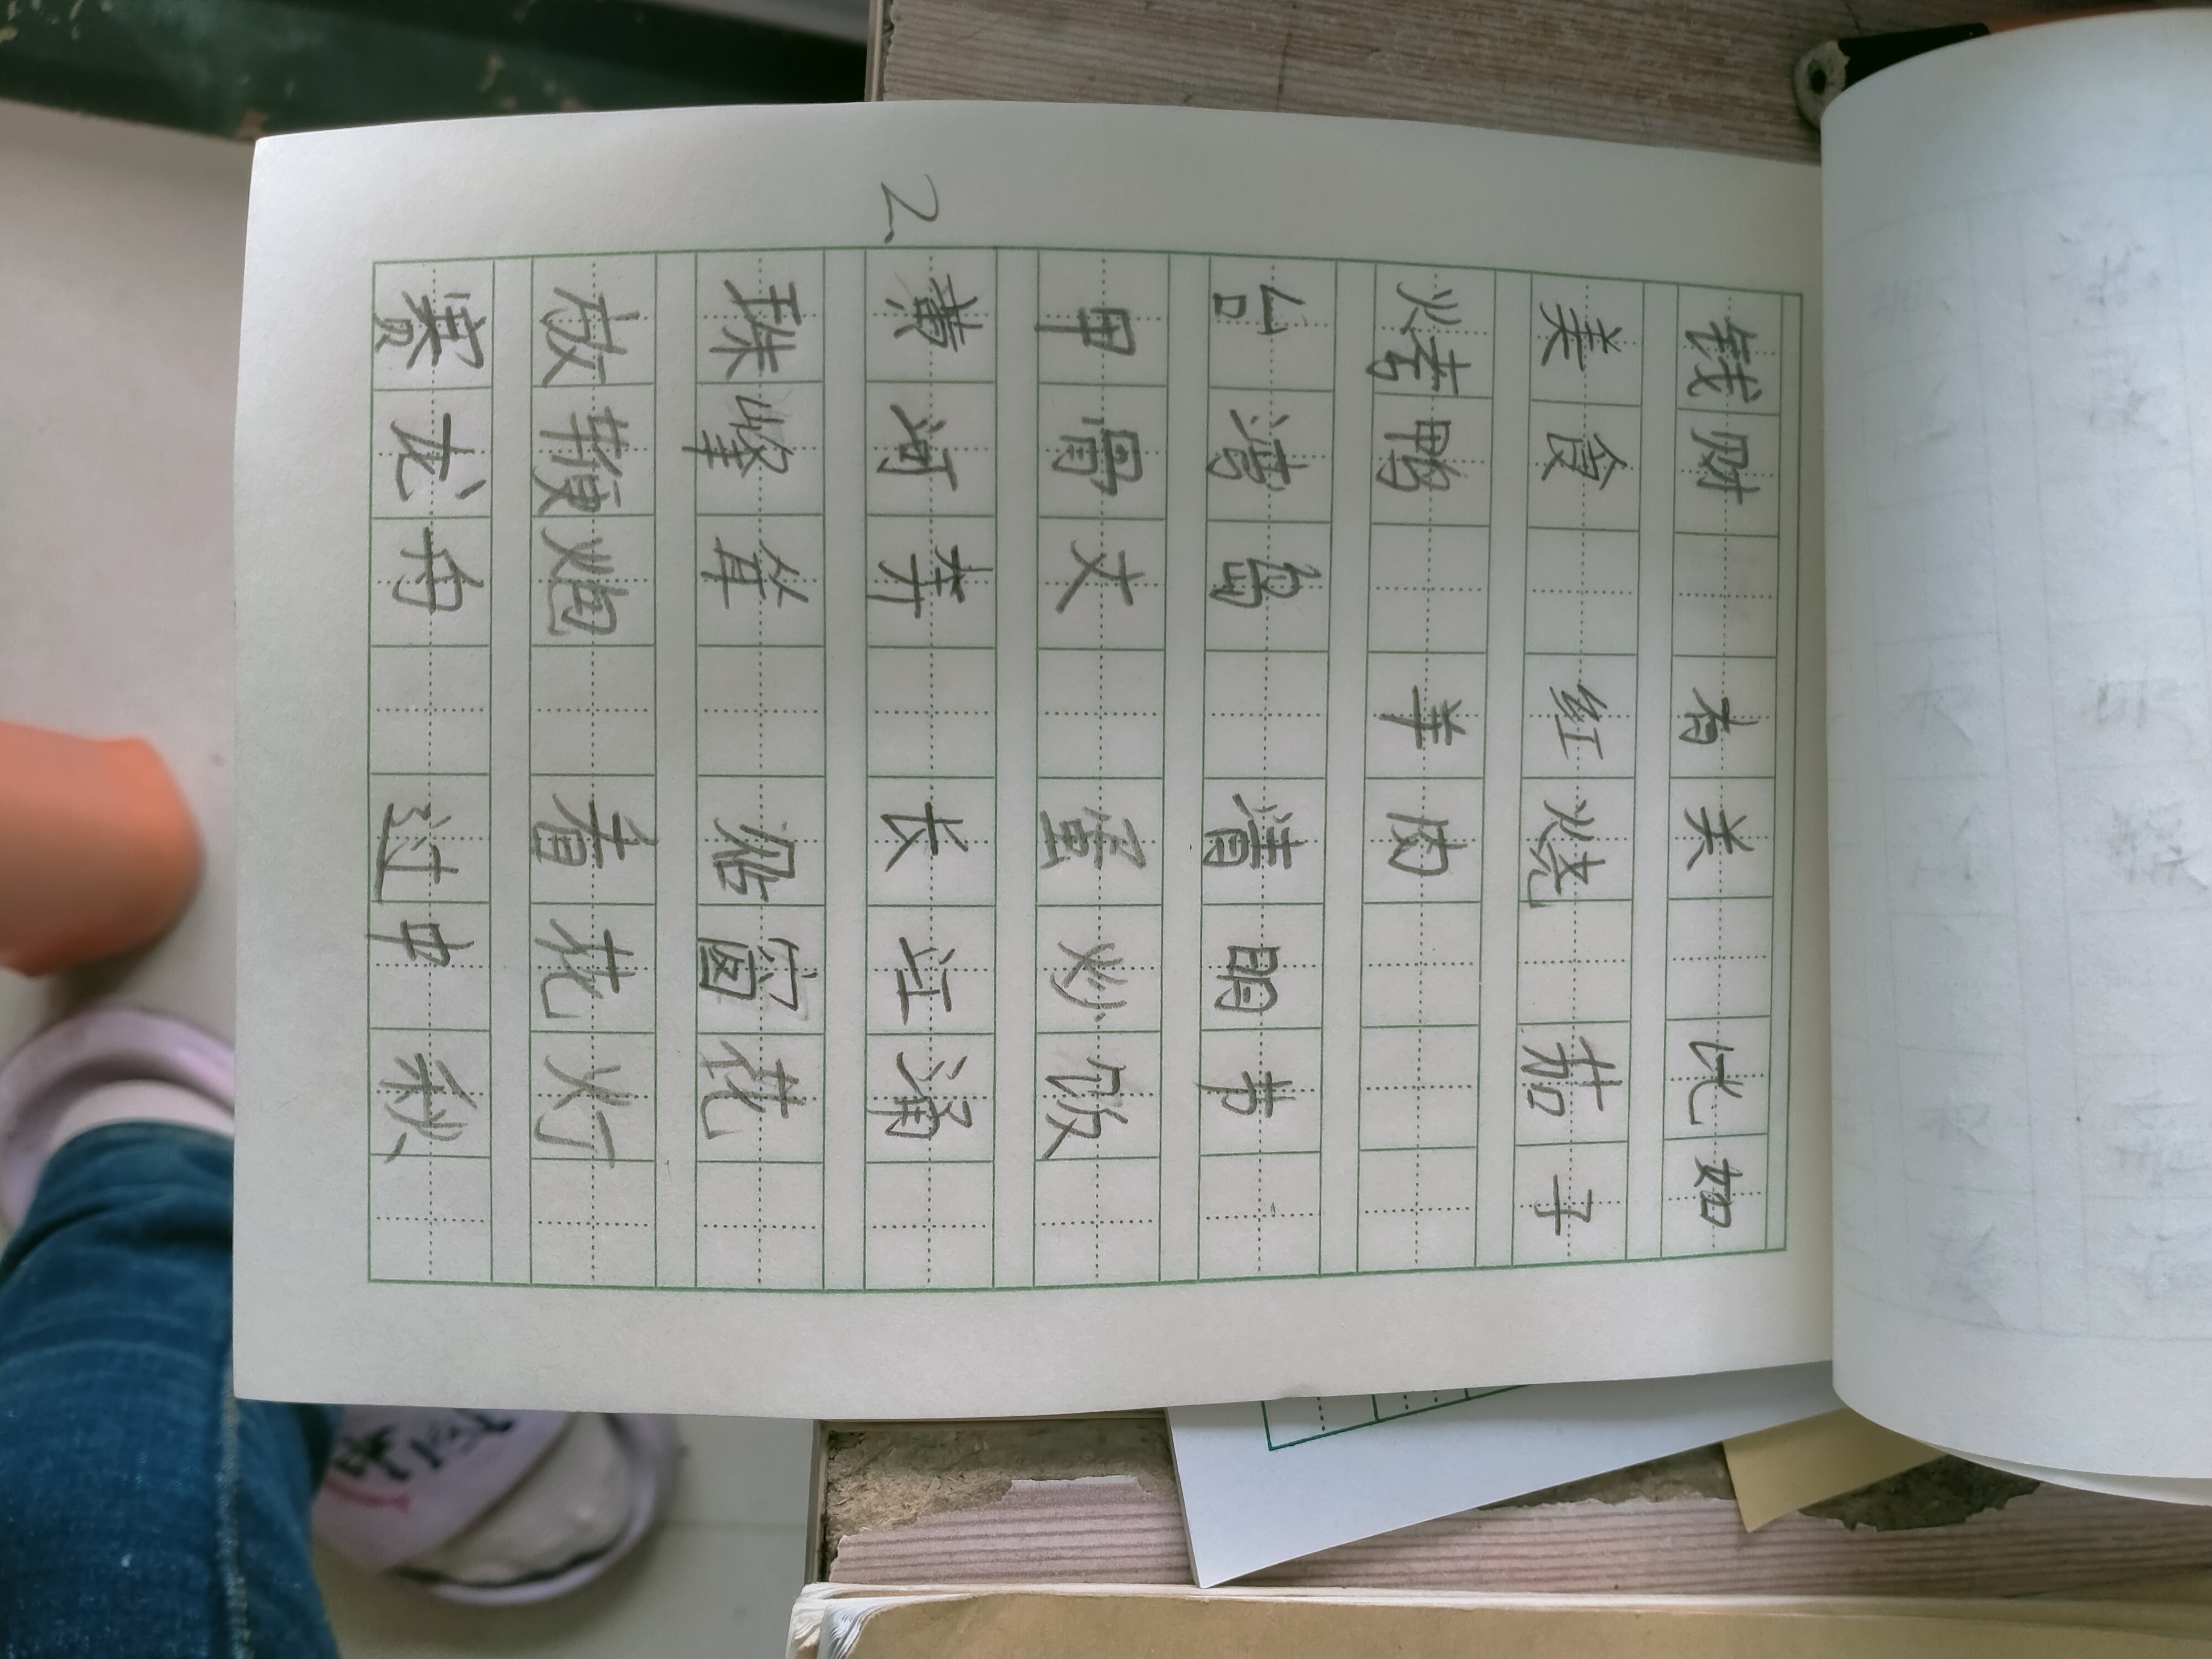 钱财 有关 比如
美食 红烧 茄子
烤鸭 羊肉
台湾岛 清明节
甲骨文 蛋炒饭
2. 黄河奔 长江涌
珠峰耸 贴窗花
放鞭炮 看花灯
赛龙舟 过中秋